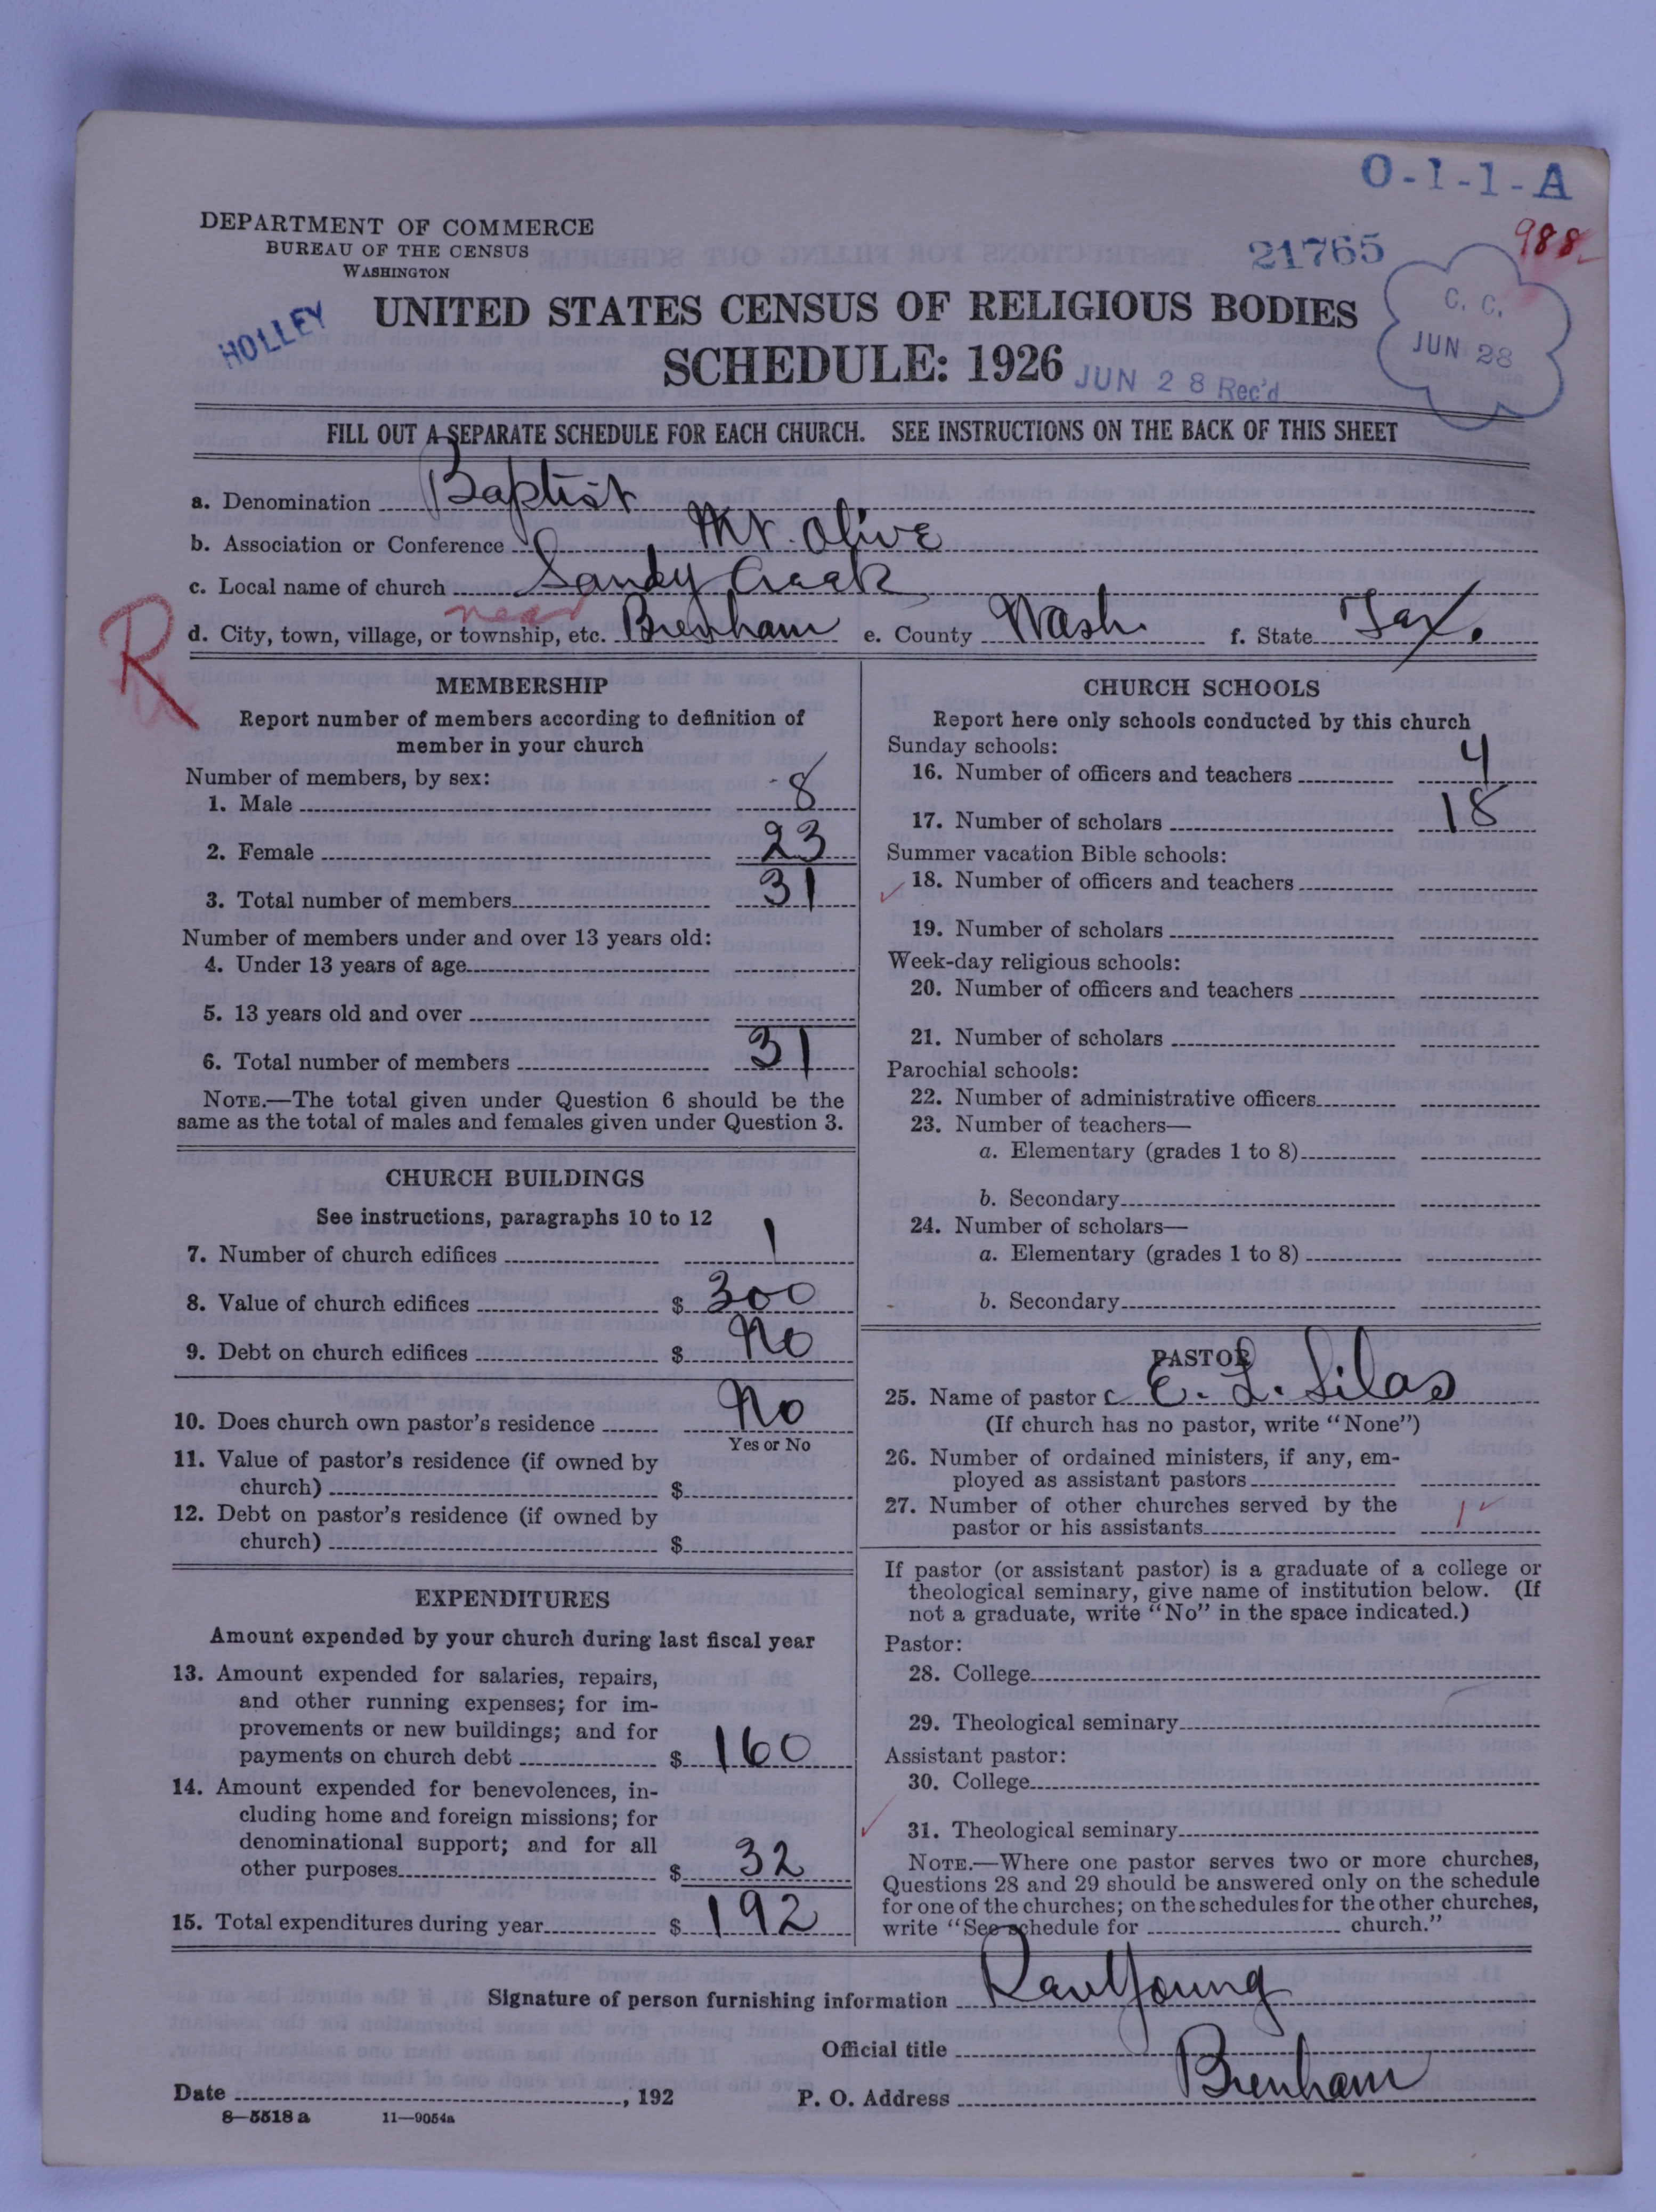 O-1-1-A
DEPARTMENT OF COMMERCE
BUREAU OF THE CENSUS
WASHINGTON
21765
988
HOLLEY
UNITED STATES CENSUS OF RELIGIOUS BODIES
C. C.
JUN 28
SCHEDULE: 1926
JUN 28 Rec'd
FILL OUT A SEPARATE SCHEDULE FOR EACH CHURCH. SEE INSTRUCTIONS ON THE BACK OF THIS SHEET
a. Denomination Baptist
b. Association or Conference Mt. Olive
c. Local name of church Sandy Creek
R
near
d. City, town, village, or township, etc. Brenham e. County Wash. f. State Tex.
MEMBERSHIP
Report number of members according to definition of
member in your church
Number of members, by sex:
1. Male 8
2. Female 23
3. Total number of members 31
Number of members under and over 13 years old:
4. Under 13 years of age
5. 13 years old and over
6. Total number of members 31
NOTE.—The total given under Question 6 should be the
same as the total of males and females given under Question 3.
CHURCH BUILDINGS
See instructions, paragraphs 10 to 12
7. Number of church edifices 1
8. Value of church edifices $ 300
9. Debt on church edifices $ No
10. Does church own pastor's residence No
Yes or No
11. Value of pastor's residence (if owned by
church) $
12. Debt on pastor's residence (if owned by
church) $
EXPENDITURES
Amount expended by your church during last fiscal year
13. Amount expended for salaries, repairs,
and other running expenses; for im-
provements or new buildings; and for
payments on church debt $ 160
14. Amount expended for benevolences, in-
cluding home and foreign missions; for
denominational support; and for all
other purposes $ 32
15. Total expenditures during year $ 192
CHURCH SCHOOLS
Report here only schools conducted by this church
Sunday schools:
16. Number of officers and teachers 4
17. Number of scholars 18
Summer vacation Bible schools:
18. Number of officers and teachers
19. Number of scholars
Week-day religious schools:
20. Number of officers and teachers
21. Number of scholars
Parochial schools:
22. Number of administrative officers
23. Number of teachers—
a. Elementary (grades 1 to 8)
b. Secondary
24. Number of scholars—
a. Elementary (grades 1 to 8)
b. Secondary
PASTOR
25. Name of pastor E. L. Silas
(If church has no pastor, write "None")
26. Number of ordained ministers, if any, em-
ployed as assistant pastors
27. Number of other churches served by the
pastor or his assistants 1
If pastor (or assistant pastor) is a graduate of a college or
theological seminary, give name of institution below. (If
not a graduate, write "No" in the space indicated.)
Pastor:
28. College
29. Theological seminary
Assistant pastor:
30. College
31. Theological seminary
NOTE.—Where one pastor serves two or more churches,
Questions 28 and 29 should be answered only on the schedule
for one of the churches; on the schedules for the other churches,
write "See schedule for church."
Signature of person furnishing information Young
Official title
Date , 192 P. O. Address Brenham
8—5518 a 11—9054a